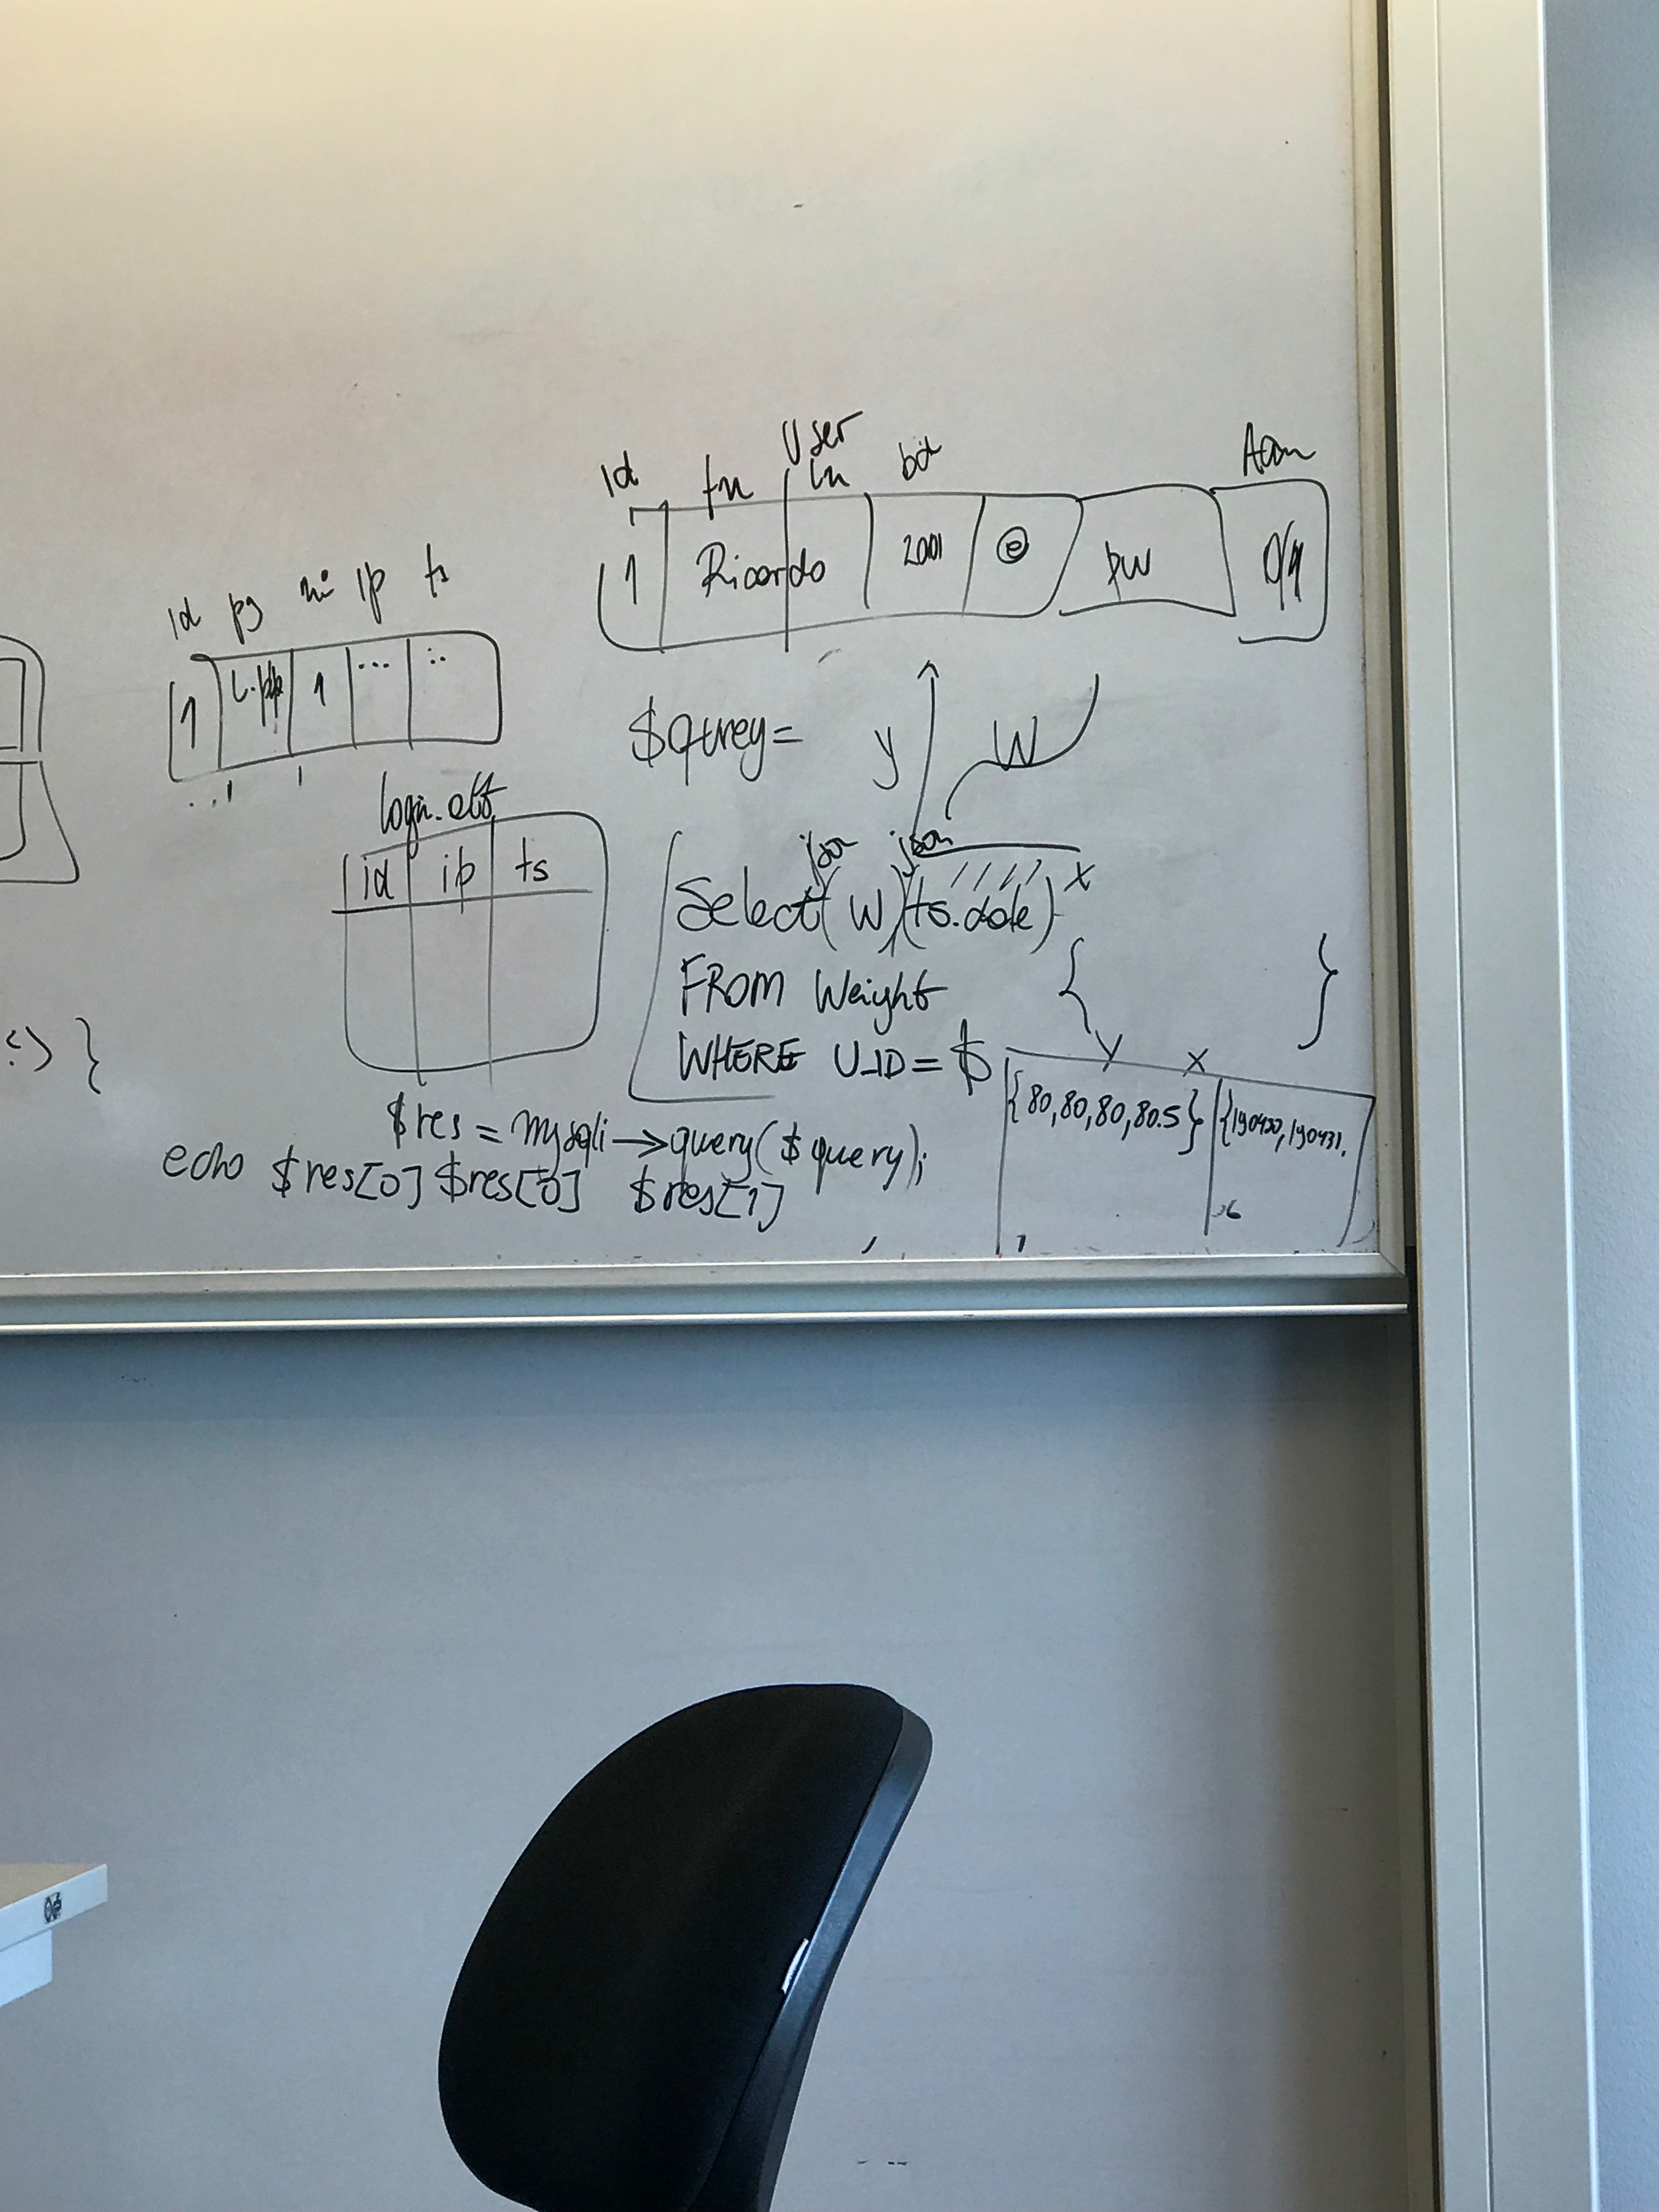 User
Id fn ln
1 Ricardo 2001 @ pw 0/1
id pg ip ts
1 1 ... ..
$qurey= y W
login.att
id ip ts
json json
Select(W),(ts.date) x
FROM Weight { }
WHERE U_ID=$
y x
{80,80,80,80.5} {190430,190431.
:) }
$res = mysqli->query($query);
echo $res[0] $res[0] $res[1]